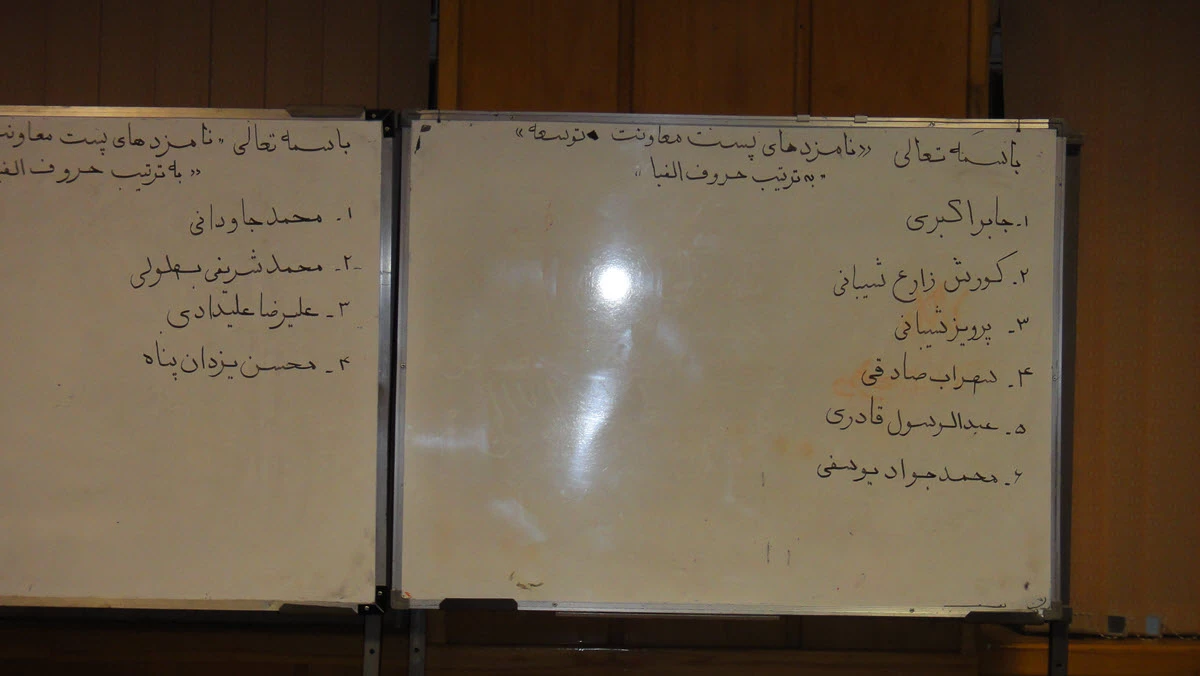 باسمه تعالی «نامزدهای پست معاونت توسعه»
"به ترتیب حروف الفبا"
۱- جابر اکبری
۲- کورش زارع شیبانی
۳- پرویز شیبانی
۴- سهراب صادقی
۵- عبدالرسول قادری
۶- محمدجواد یوسفی
باسمه تعالی "نامزدهای پست معاونت
«به ترتیب حروف الفبا
۱- محمد جاودانی
۲- محمد شریفی بهلولی
۳- علیرضا علیدادی
۴- محسن یزدان پناه